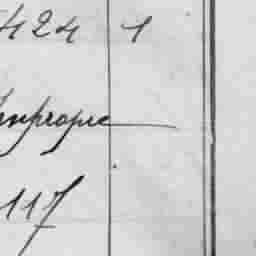 424 1
Impropre
117